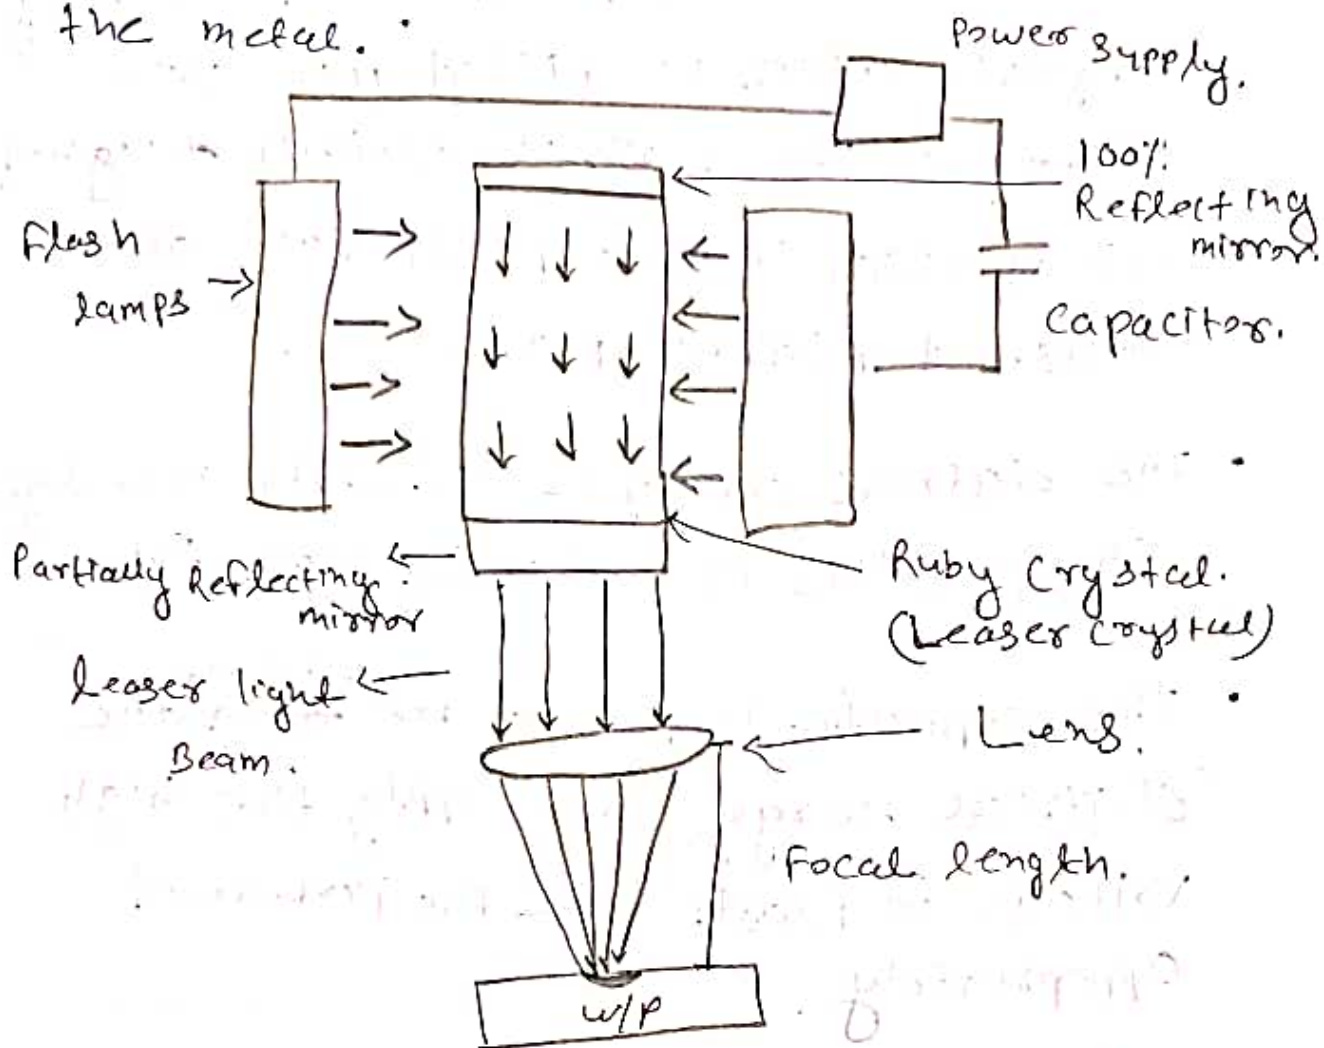 the metal.
Power Supply.
100%
Reflecting
mirror.
Flash
lamps
Capacitor.
Partially Reflecting
mirror
Ruby Crystal.
(Leaser crystal)
Leaser light
Beam.
Lens.
Focal length.
W/P